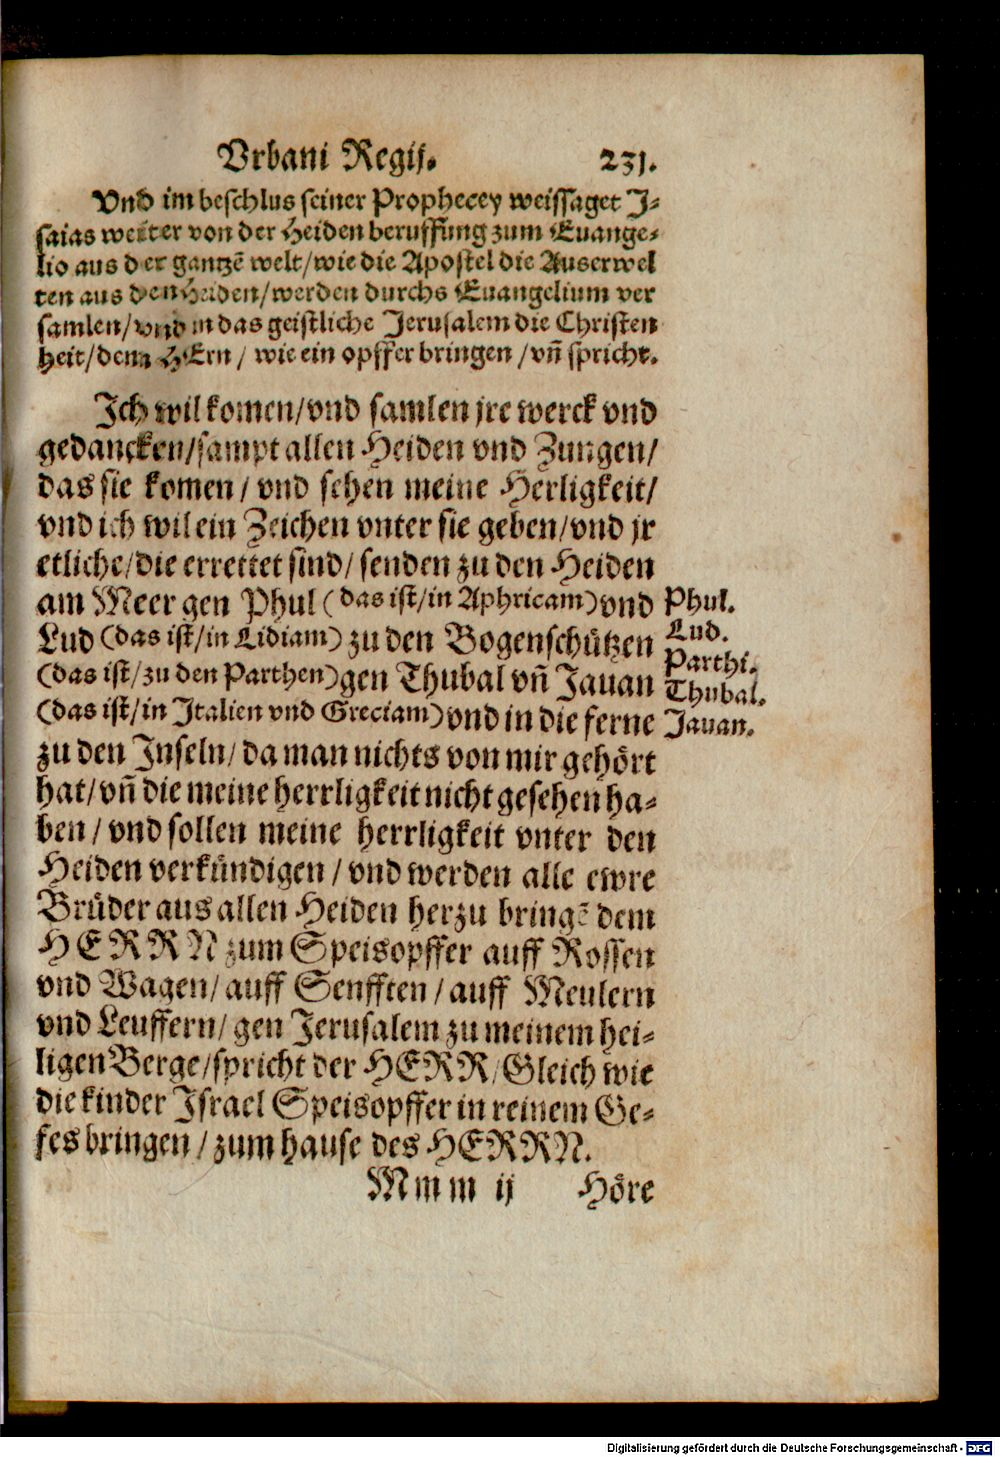 Vrbani Regij. 231.
Vnd im beschlus seiner Prophecey weissaget J-
saias weiter von der Heiden beruffung zum Euange-
lio aus der gantzē welt/wie die Apostel die Auserwel
ten aus den Heiden/werden durchs Euangelium ver
samlen/vnd in das geistliche Jerusalem die Christen
heit/dem HErn/ wie ein opffer bringen/vn̄ spricht.
Jch wil komen/vnd samlen jre werck vnd
gedancken/sampt allen Heiden vnd Zungen/
das sie komen/vnd sehen meine Herligkeit/
vnd ich wil ein Zeichen vnter sie geben/vnd jr
etliche/die errettet sind/senden zu den Heiden
am Meer gen Phul (das ist/in Aphricam) vnd
Phul.
Lud (das ist/in Lidiam) zu den Bogenschützen
Lud.
(das ist/zu den Parthen) gen Thubal vn̄ Jauan
Parthi.
Thubal.
(das ist/in Jtalien vnd Greciam) vnd in die ferne
Jauan.
zu den Jnseln/da man nichts von mir gehört
hat/vn̄ die meine herrligkeit nicht gesehen ha-
ben/vnd sollen meine herrligkeit vnter den
Heiden verkündigen/vnd werden alle ewre
Brüder aus allen Heiden herzu bringē dem
HERRN zum Speisopffer auff Rossen
vnd Wagen/auff Senfften/auff Meulern
vnd Leuffern/gen Jerusalem zu meinem hei-
ligen Berge/spricht der HERR/Gleich wie
die kinder Jsrael Speisopffer in reinem Ge-
fes bringen/zum hause des HERRN.
Mmm ij Höre
Digitalisierung gefördert durch die Deutsche Forschungsgemeinschaft - DFG